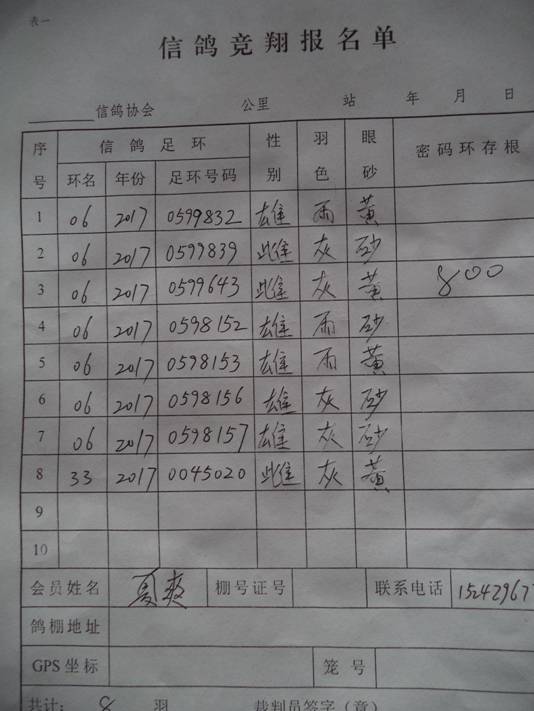 表一
信鸽竞翔报名单
信鸽协会 公里 站 年 月 日
序号 信鸽足环 性别 羽色 眼砂 密码环存根
环名 年份 足环号码
1 06 2017 0599832 雄 雨 黄
2 06 2017 0599839 雌 灰 砂
3 06 2017 0599643 雌 灰 黄 800
4 06 2017 0598152 雄 雨 砂
5 06 2017 0598153 雄 雨 黄
6 06 2017 0598156 雄 灰 砂
7 06 2017 0598157 雄 灰 砂
8 33 2017 0045020 雌 灰 黄
9
10
会员姓名 夏爽 棚号证号 联系电话 1524296
鸽棚地址
GPS坐标 笼号
共计: 8 羽 裁判员签字(章)